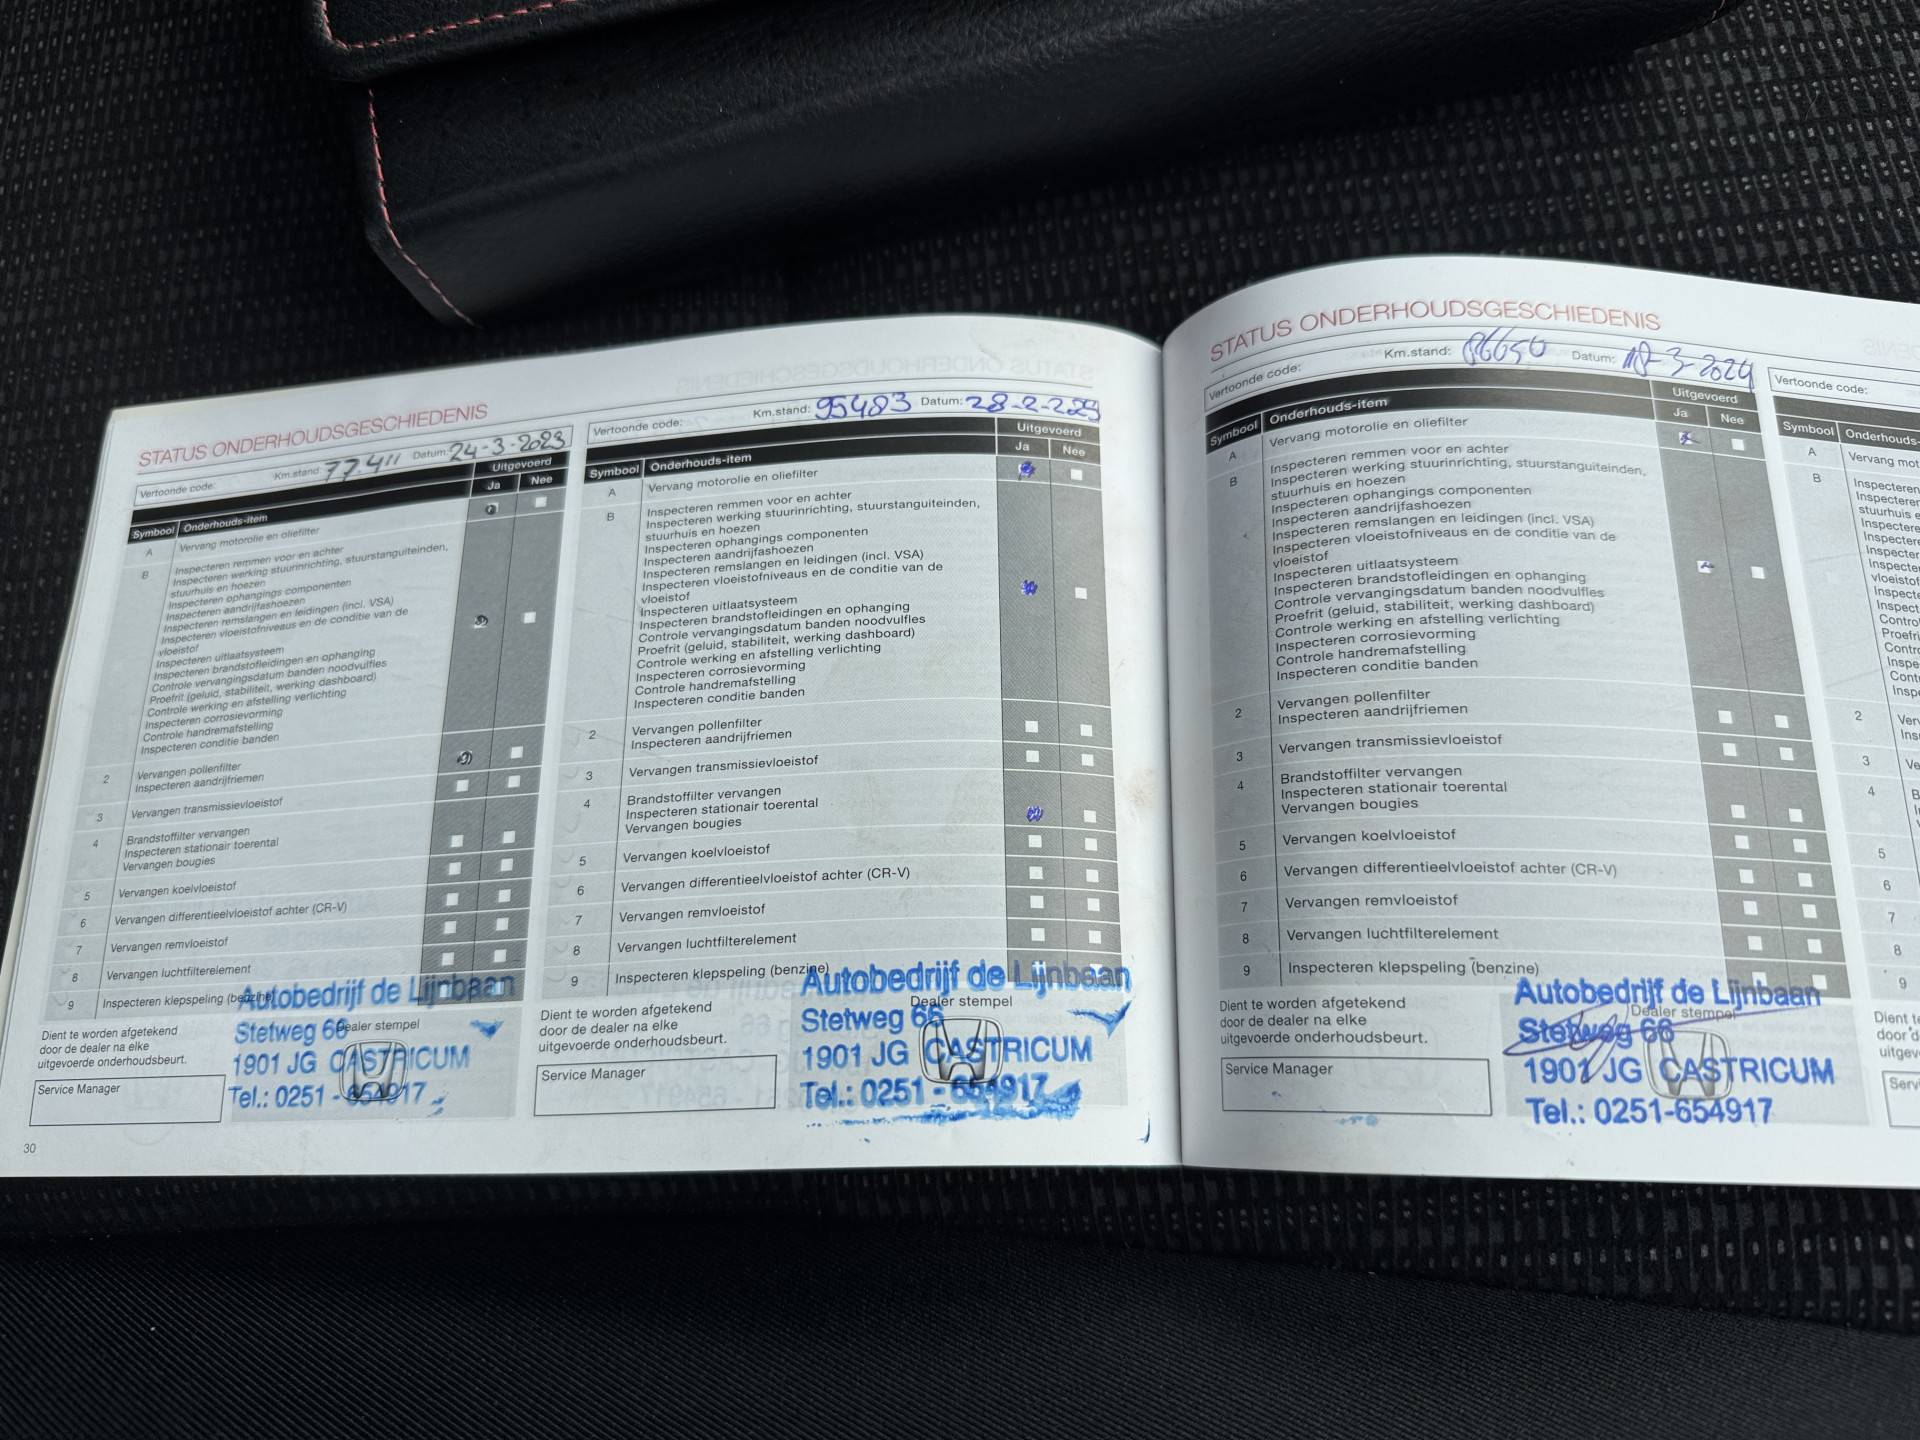 STATUS ONDERHOUDSGESCHIEDENIS
Vertoonde code: Km.stand: 77.411 Datum: 24-3-2023
Symbool Onderhouds-item Uitgevoerd
Ja Nee
A Vervang motorolie en oliefilter
B Inspecteren remmen voor en achter
Inspecteren werking stuurinrichting, stuurstanguiteinden,
stuurhuis en hoezen
Inspecteren ophangings componenten
Inspecteren aandrijfashoezen
Inspecteren remslangen en leidingen (incl. VSA)
Inspecteren vloeistofniveaus en de conditie van de
vloeistof
Inspecteren uitlaatsysteem
Inspecteren brandstofleidingen en ophanging
Controle vervangingsdatum banden noodvulfles
Proefrit (geluid, stabiliteit, werking dashboard)
Controle werking en afstelling verlichting
Inspecteren corrosievorming
Controle handremafstelling
Inspecteren conditie banden
2 Vervangen pollenfilter
Inspecteren aandrijfriemen
3 Vervangen transmissievloeistof
4 Brandstoffilter vervangen
Inspecteren stationair toerental
Vervangen bougies
5 Vervangen koelvloeistof
6 Vervangen differentieelvloeistof achter (CR-V)
7 Vervangen remvloeistof
8 Vervangen luchtfilterelement
9 Inspecteren klepspeling (benzine)
Dient te worden afgetekend
door de dealer na elke
uitgevoerde onderhoudsbeurt.
Service Manager
Dealer stempel
Autobedrijf de Lijnbaan
Stetweg 66
1901 JG CASTRICUM
Tel.: 0251 - 654917
30
Vertoonde code: Km.stand: 95483 Datum: 28-2-2025
Symbool Onderhouds-item Uitgevoerd
Ja Nee
A Vervang motorolie en oliefilter
B Inspecteren remmen voor en achter
Inspecteren werking stuurinrichting, stuurstanguiteinden,
stuurhuis en hoezen
Inspecteren ophangings componenten
Inspecteren aandrijfashoezen
Inspecteren remslangen en leidingen (incl. VSA)
Inspecteren vloeistofniveaus en de conditie van de
vloeistof
Inspecteren uitlaatsysteem
Inspecteren brandstofleidingen en ophanging
Controle vervangingsdatum banden noodvulfles
Proefrit (geluid, stabiliteit, werking dashboard)
Controle werking en afstelling verlichting
Inspecteren corrosievorming
Controle handremafstelling
Inspecteren conditie banden
2 Vervangen pollenfilter
Inspecteren aandrijfriemen
3 Vervangen transmissievloeistof
4 Brandstoffilter vervangen
Inspecteren stationair toerental
Vervangen bougies
5 Vervangen koelvloeistof
6 Vervangen differentieelvloeistof achter (CR-V)
7 Vervangen remvloeistof
8 Vervangen luchtfilterelement
9 Inspecteren klepspeling (benzine)
Dient te worden afgetekend
door de dealer na elke
uitgevoerde onderhoudsbeurt.
Service Manager
Dealer stempel
Autobedrijf de Lijnbaan
Stetweg 66
1901 JG CASTRICUM
Tel.: 0251 - 654917
STATUS ONDERHOUDSGESCHIEDENIS
Vertoonde code: Km.stand: 86650 Datum: 18-3-2024
Symbool Onderhouds-item Uitgevoerd
Ja Nee
A Vervang motorolie en oliefilter
B Inspecteren remmen voor en achter
Inspecteren werking stuurinrichting, stuurstanguiteinden,
stuurhuis en hoezen
Inspecteren ophangings componenten
Inspecteren aandrijfashoezen
Inspecteren remslangen en leidingen (incl. VSA)
Inspecteren vloeistofniveaus en de conditie van de
vloeistof
Inspecteren uitlaatsysteem
Inspecteren brandstofleidingen en ophanging
Controle vervangingsdatum banden noodvulfles
Proefrit (geluid, stabiliteit, werking dashboard)
Controle werking en afstelling verlichting
Inspecteren corrosievorming
Controle handremafstelling
Inspecteren conditie banden
2 Vervangen pollenfilter
Inspecteren aandrijfriemen
3 Vervangen transmissievloeistof
4 Brandstoffilter vervangen
Inspecteren stationair toerental
Vervangen bougies
5 Vervangen koelvloeistof
6 Vervangen differentieelvloeistof achter (CR-V)
7 Vervangen remvloeistof
8 Vervangen luchtfilterelement
9 Inspecteren klepspeling (benzine)
Dient te worden afgetekend
door de dealer na elke
uitgevoerde onderhoudsbeurt.
Service Manager
Dealer stempel
Autobedrijf de Lijnbaan
Stetweg 66
1901 JG CASTRICUM
Tel.: 0251-654917
Vertoonde code:
Symbool Onderhouds-
A Vervang mot
B Inspecteren
Inspecteren
stuurhuis e
2
3
4
5
6
7
8
9
Dient te
door de
uitgev